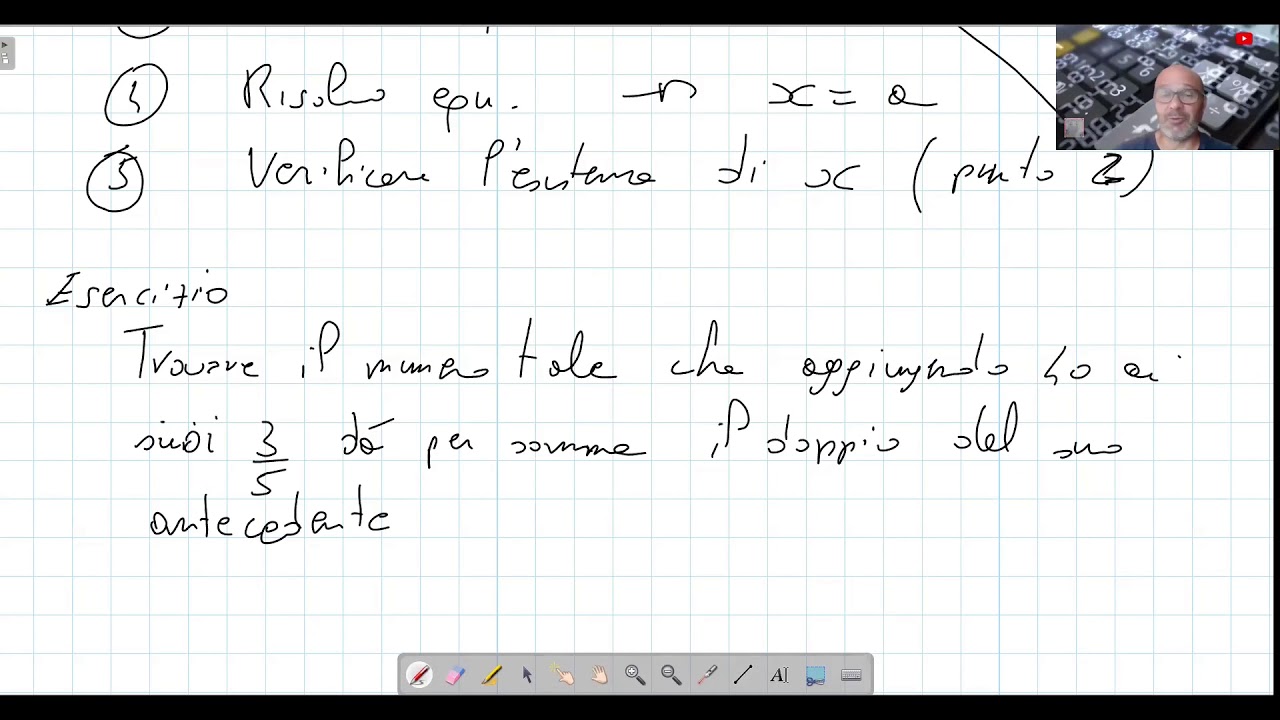 ④ Risolvo equ. → x = a
⑤ Verificare l'esistenza di x (punto 2)
Esercizio
Trovare il numero tale che aggiungendo 40 ai
suoi 3/5 dà per somma il doppio del suo
antecedente